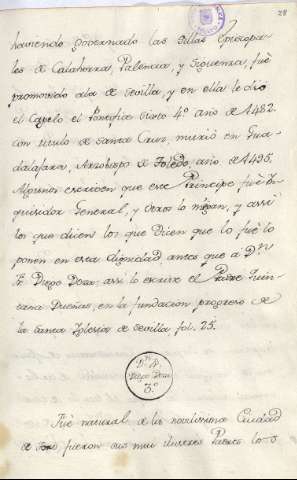 28
haviendo governado las sillas Episcopa-
les de Calahorra, Palencia, y Siguenza, fuè
promovido ala de Sevilla, y en ella le dió
el Capelo el Pontifice Sixto 4º año de 1482.
con titulo de Santa Cruz, murió en Gua-
dalaxara, Arzobispo de Toledo, año de 1495.
Algunos escriven que este Principe fuè In-
quisidor General, y otros lo niegan, y assi
los que dicen los que dicen que lo fuè lo
ponen en esta dignidad, antes que a Dn
Fr. Diego Deza, assi lo escrive el Padre Quin-
tana Dueñas, en la fundacion progreso de
la Santa Iglesia de Sevilla fol. 25.
Dn Fr.
Diego Deza
3º
Fuè natural de la novilisima Ciudad
de Toro, fueron sus mui ilustres Padres los